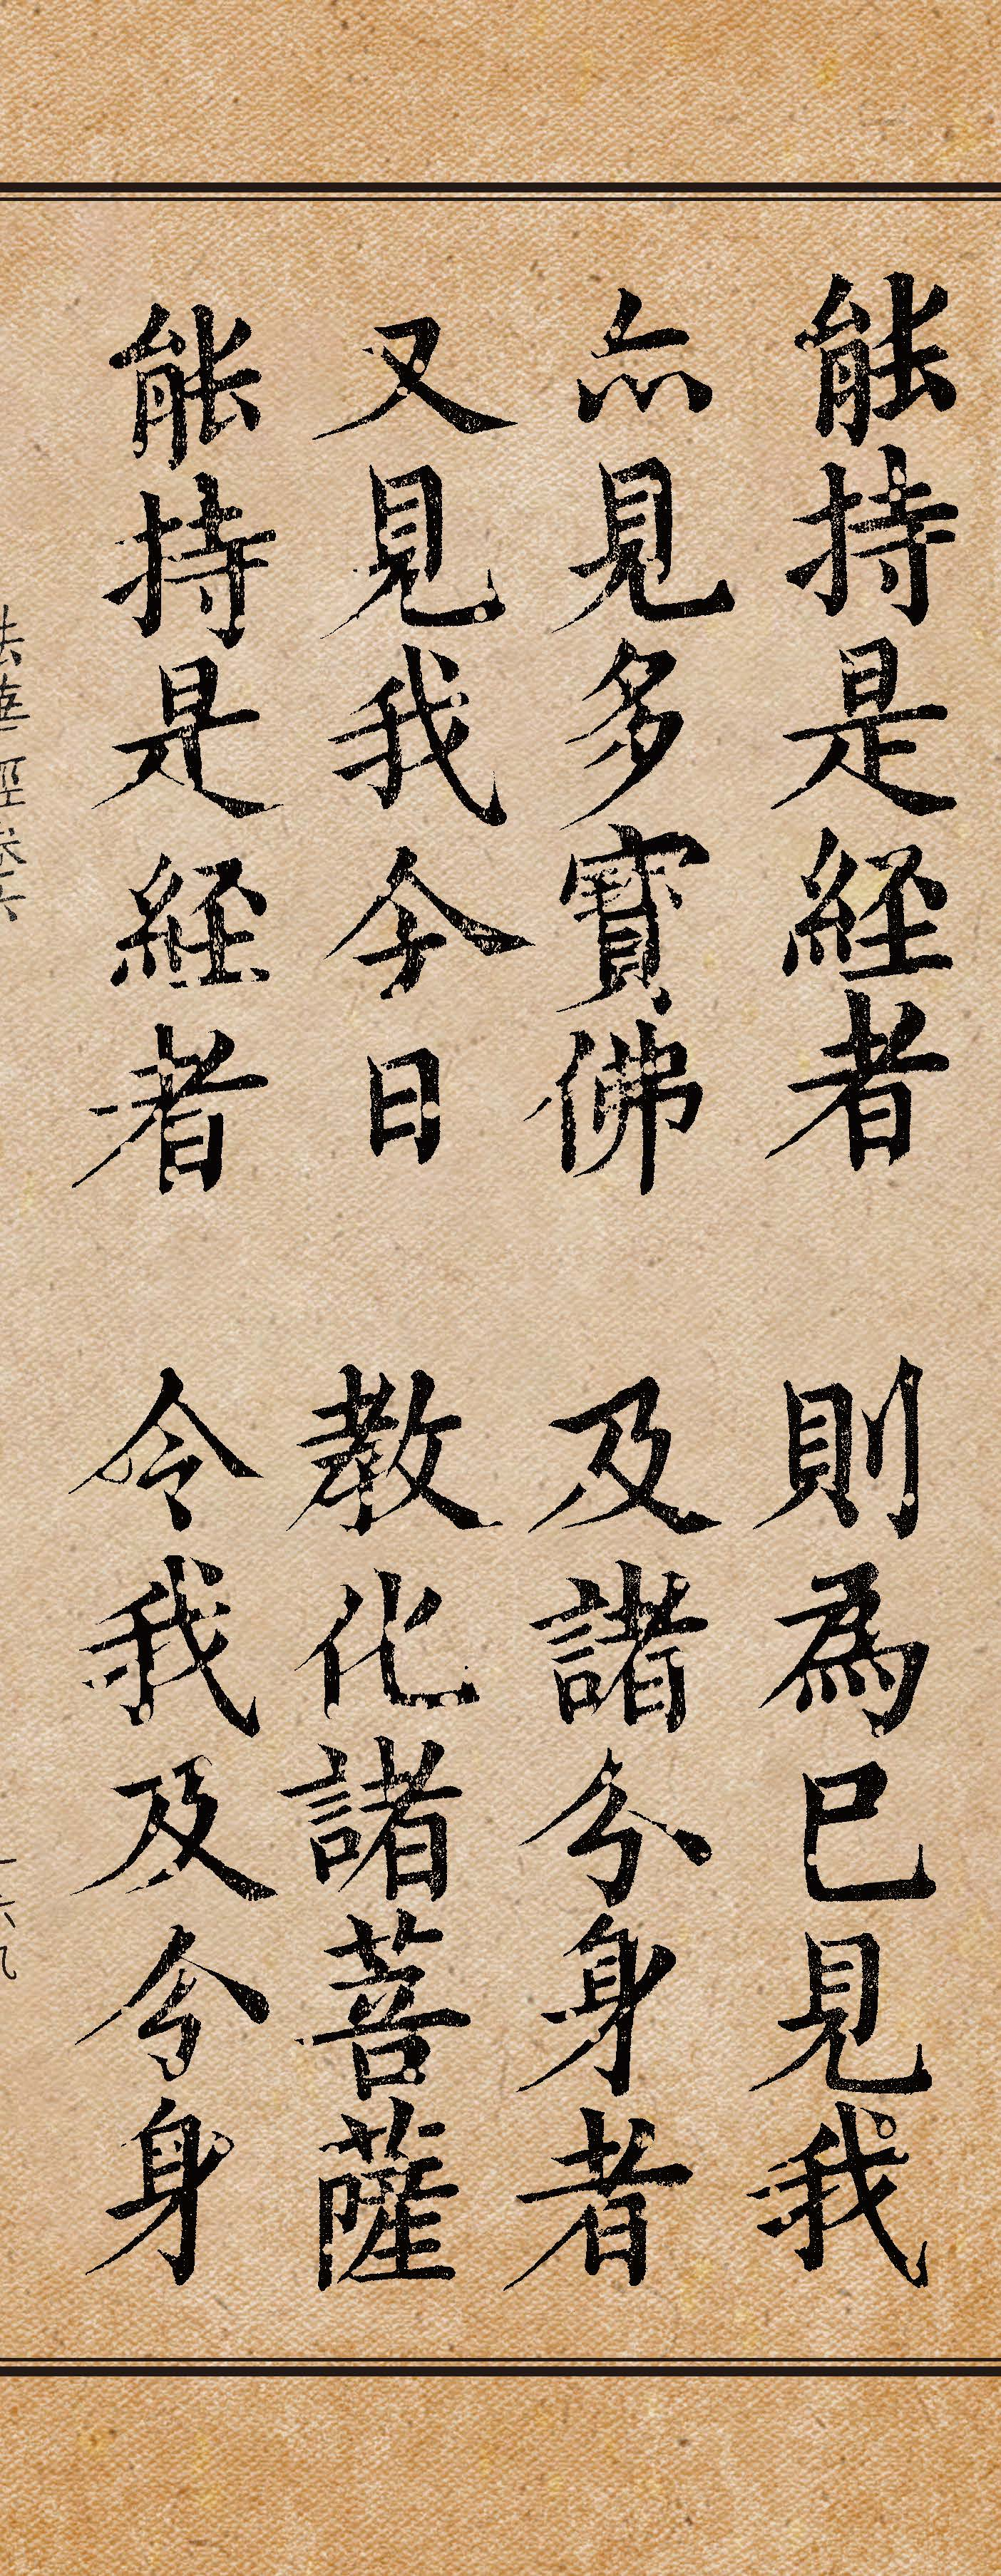 能持是經者　則為已見我
亦見多寶佛　及諸分身者
又見我今日　教化諸菩薩
能持是經者　令我及分身
法華經卷六　一六九